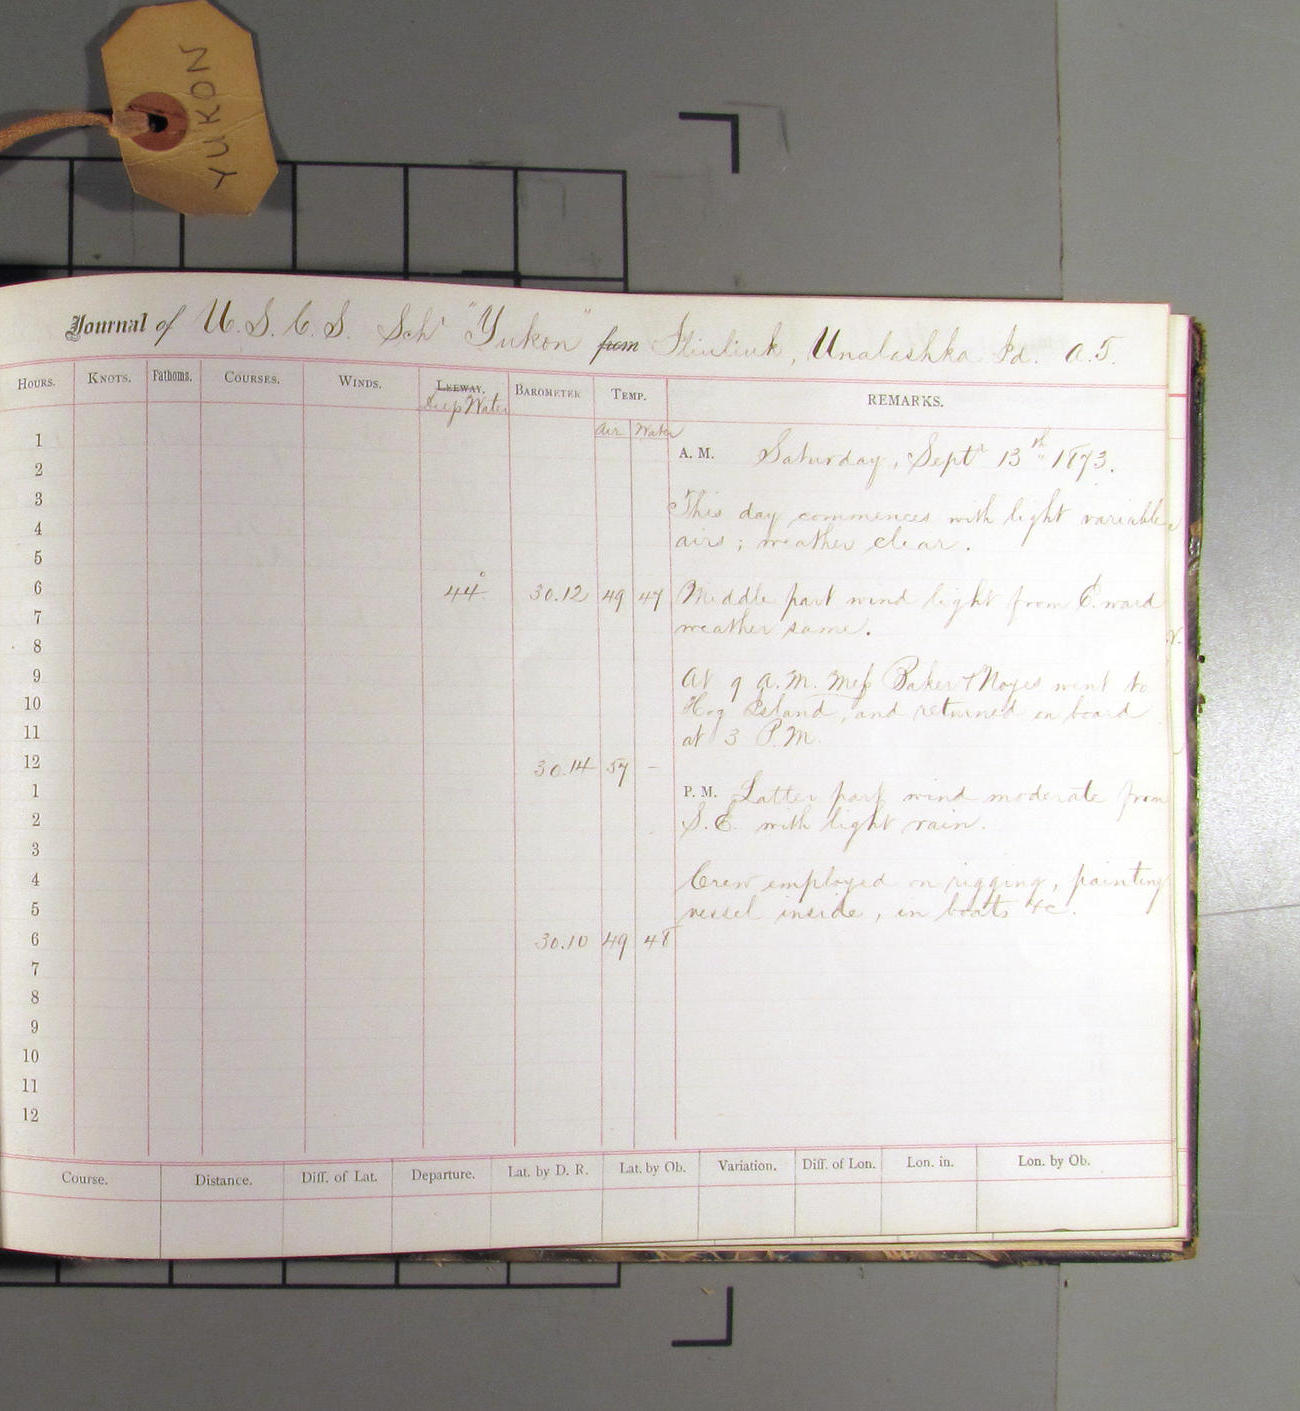 YUKON
Journal of U.S.C.S. Schr "Yukon" from Iliuliuk, Unalashka Id. A.T.
HOURS. KNOTS. Fathoms. COURSES. WINDS. LEEWAY. BAROMETER TEMP. REMARKS.
Deep Water
Air Water
1
A.M. Saturday, Septr 13th 1873.
2
3
This day commences with light variable
4
airs; weather clear.
5
6 44° 30.12 49 47 Middle part wind light from E.ward
7
weather same.
8
9
At 9 A.M. Mess Baker & Noyes went to
10
Hog Island, and returned on board
11
at 3 P.M.
12 30.14 57 –
1
P.M. Latter part wind moderate from
2
S.E. with light rain.
3
4
Crew employed on rigging, painting
5
vessel inside, in boats &c.
6 30.10 49 48
7
8
9
10
11
12
Course. Distance. Diff. of Lat. Departure. Lat. by D. R. Lat. by Ob. Variation. Diff. of Lon. Lon. in. Lon. by Ob.